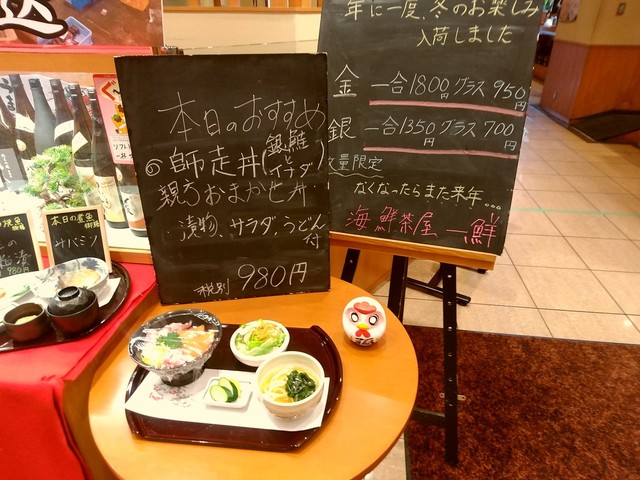 年に一度、冬のお楽しみ
入荷しました
金 一合1800円 グラス 950円
銀 一合1350円 グラス 700円
数量限定
なくなったらまた来年…
海鮮茶屋 一鮮
本日のおすすめ
師走丼(銀鮭とイナダ)
親方おまかせ丼
漬物、サラダ、うどん付
税別 980円
本日の煮魚
サバミソ
980円